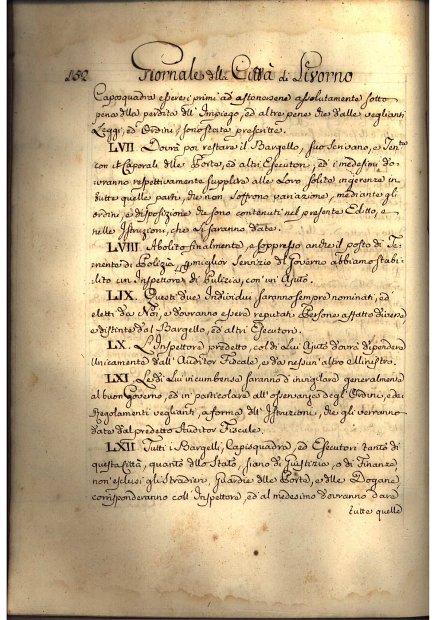 152 Giornale della Città di Livorno
Caposquadra essere i primi ad astenersene assolutamente sotto
pena della perdita dell'Impiego, ed altre pene che dalle veglianti
Leggi, ed Ordini sono state prescritte.
LVII Dovrà poi restare il Bargello, suo Scrivano, e Tente
con it Caporali delle Porte, ed altri Esecutori, ed i medesimi do=
vranno respettivamente supplire alle Loro solite ingerenze in
tutte quelle parti, che non soffrono variazione, mediante gli
ordini, e disposizione che sono contenuti nel presente Editto, e
nelle Istruzioni, che li saranno date.
LVIII Abolito finalmente, e soppresso anche il posto di Te=
nente di Polizia, miglior Servizio del Governo abbiamo stabi=
lito un Inspettore di Pulizia, con un Ajuto.
LIX. Questi due Individui saranno sempre nominati, ed
eletti da Noi, e dovranno essere reputati Persone affatto diverse
e distinte dal Bargello, ed altri Esecutori.
LX. L'Inspettore predetto, col di Lui Ajuto dovrà dipendere
Unicamente dall'Auditor Fiscale, e da nessun'altro Ministro.
LXI Le di Lui incumbenze saranno d'invigilare generalmente
al buon Governo, ed in particolare all'osservanza degl'Ordini, e dei
Regolamenti veglianti, a forma dell'Istruzioni, che gli verranno
date dal predetto Auditor Fiscale.
LXII Tutti i Bargelli, Capisquadra, ed Esecutori tanto di
questa Città, quanto dello Stato, siano di Giustizia, o di Finanze,
non esclusi gli Stradieri, Guardie delle Porte, e delle Dogane
corrisponderanno coll'Inspettore, ed al medesimo dovranno dare
tutte quelle